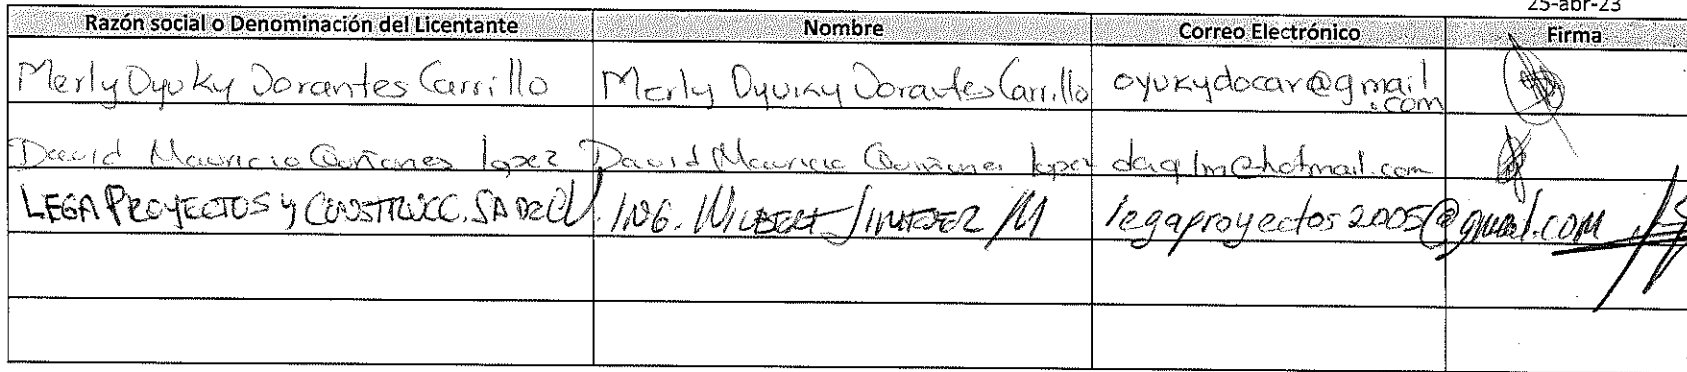 25-abr-23
Razón social o Denominación del Licentante Nombre Correo Electrónico Firma
Merly Oyuky Dorantes Carrillo Merly Oyuky Dorantes Carrillo oyukydocar@gmail
.com
David Mauricio Quiñones lopez David Mauricio Quiñones lopez daqlm@hotmail.com
LEGA PROYECTOS y CONSTRUCC. SA DE CV. ING. WILBERT M legaproyectos2005@gmail.com